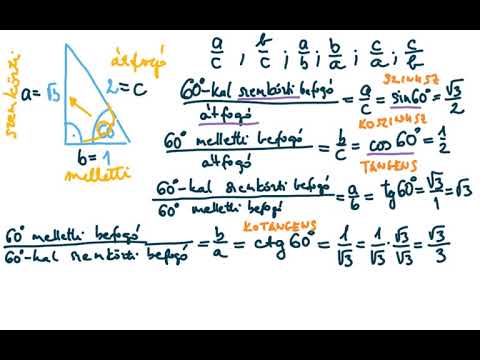 szemközti
a = √3
átfogó
2 = c
60°
b = 1
melletti
a/c , b/c ; a/b ; b/a ; c/a ; c/b
SZINUSZ
60°-kal szemközti befogó / átfogó = a/c = sin60° = √3/2
KOSZINUSZ
60° melletti befogó / átfogó = b/c = cos60° = 1/2
TANGENS
60°-kal szemközti befogó / 60° melletti befogó = a/b = tg60° = √3/1 = √3
KOTANGENS
60° melletti befogó / 60°-kal szemközti befogó = b/a = ctg60° = 1/√3 = 1/√3 · √3/√3 = √3/3